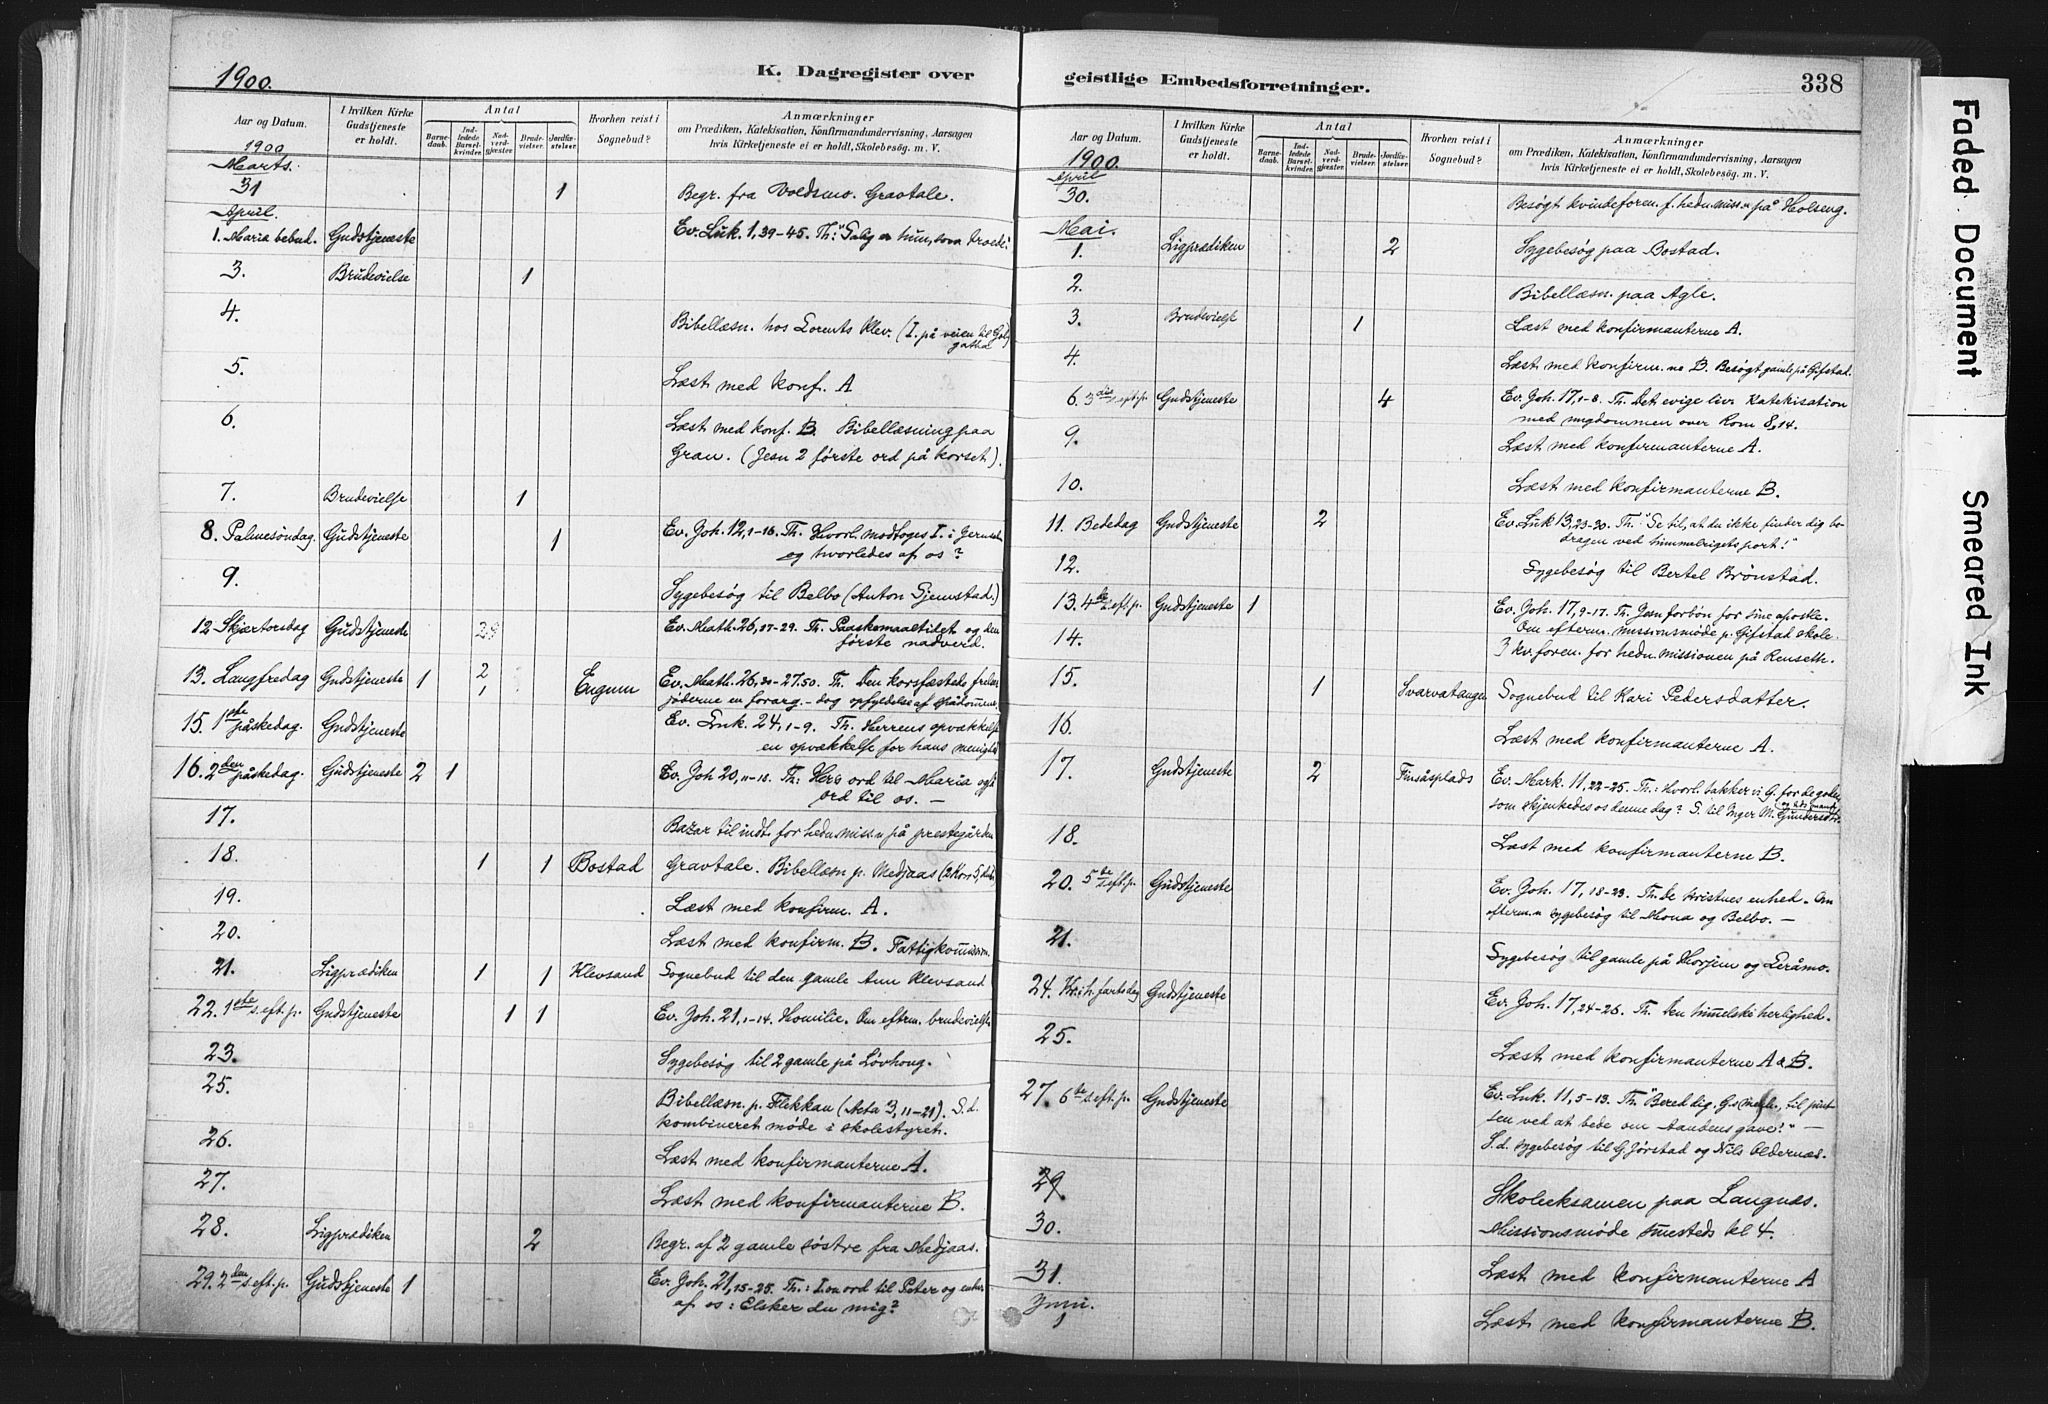 1900.
K. Dagregister over
Aar og Datum.
I hvilken Kirke Gudstjeneste er holdt.
Antal
Barnedaab.
Indledede Barselkvinder.
Nadverdgjæster.
Brudevielser.
Jordfæstelser.
Hvorhen reist i Sognebud?
Anmærkninger
om Prædiken, Katekisation, Konfirmandundervisning, Aarsagen
hvis Kirketjeneste ei er holdt, Skolebesøg. m. V.
1900
Marts.
31 1 Begr. fra Voldsmo. Gravtale.
April.
1. Maria bebud. Gudstjeneste Ev. Luk. 1, 39-45. Th: "Salig er hun, som troede."
3. Brudevielse 1
4. Bibellæsn. hos Lorents Klev. (I. på veien til Golgatha
5. Læst med konf. A
6. Læst med konf. B. Bibellæsning paa
Gran. (Jesu 2 første ord på korset).
7. Brudevielse 1
8. Palmesøndag. Gudstjeneste 1 Ev. Joh. 12, 1-16. Th. Hvorl. modtoges I. i Jerusalem
og hvorledes af os?
9. Sygebesøg til Belbo (Anton Gjemstad.)
12 Skjærtorsdag Gudstjeneste Ev. Math. 26, 17-29. Th. Paaskemaaltidet og den
første nadverd.
13. Langfredag Gudstjeneste 1 2 1 Ev. Math. 26, 27.50. Th. Den korsfæstede frelser
jøderne en forarg. - dog opfyldelse af spådomme.
15. 1ste påskedag. Gudstjeneste Ev. Luk. 24, 1-9. Th. Herrens opvækkelse
en opvækkelse for hans menighed
16. 2den påskedag. Gudstjeneste 2 1 Ev. Joh 20, 11-18. Th: Hers ord til Maria og
ord til os. -
17. Bazar til indt. for hedn. miss.n på prestegården
18. 1 1 Bostad Gravtale. Bibellæsn p. Medjaas (2 Kor. 5,
19. Læst med konfirm. A.
20. Læst med konfirm. B. Fattigkommission.
21. Ligprædiken 1 1 Klevsand Sognebud til den gamle Ann Klevsand
22. 1ste s. eft. p. Gudstjeneste 1 1 Ev. Joh. 21, 1-14. Homilie. Om eftrm. brudevielse
23. Sygebesøg til 2 gamle på Løvhoug.
25. Bibellæsn. p. Flekkan (Acta 3, 11-21). S. d.
kombineret møde i skolestyret.
26. Læst med konfirmanterne A.
27. Læst med konfirmanterne B.
28. Ligprædiken 2 Begr. af 2 gamle søstre fra Medjaas.
29. 2den s. eft. p. Gudstjeneste 1 Ev. Joh. 21, 15-25. Th.: I.s ord til Peter og enhver
af os: Elsker du mig?
geistlige Embedsforretninger.
338
Aar og Datum.
I hvilken Kirke Gudstjeneste er holdt.
Antal
Barnedaab.
Indledede Barselkvinder.
Nadverdgjæster.
Brudevielser.
Jordfæstelser.
Hvorhen reist i Sognebud?
Anmærkninger
om Prædiken, Katekisation, Konfirmandundervisning, Aarsagen
hvis Kirketjeneste ei er holdt, Skolebesøg. m. V.
1900.
April
30. Besøgt kvindeforen. f. hedn. miss.n på Holseng.
Mai.
1. Ligprædiken 2 Sygebesøg paa Bostad.
2. Bibellæsn. paa Agle.
3. Brudevielse 1 Læst med konfirmanterne A.
4. Læst med konfirm. ne B. Besøgt gamle på Gifstad.
6. 3die s. eft. p. Gudstjeneste 4 Ev. Joh. 17, 1-8. Th. Det evige liv. Katekisation
med ungdommen over Rom 8, 14.
9. Læst med konfirmanterne A.
10. Læst med konfirmanterne B.
11. Bededag Gudstjeneste 2 Ev. Luk 13, 23-30. Th. "Se til, at du ikke finder dig bedragen
ved himmelrigets port!"
12. Sygebesøg til Bertel Brønstad.
13. 4de s. eft. p. Gudstjeneste 1 Ev. Joh. 17, 9-17. Th. Jesu forbøn for sine apostle.
Om efterm. missionsmøde p. Gifstad skole.
14. 3 kv. foren. for hedn. missionen på Renseth.
15. 1 Svarvatangen Sognebud til Kari Pedersdatter.
16. Læst med konfirmanterne A.
17. Gudstjeneste 2 Finsåsplads Ev. Mark. 11, 22-25. Th.: Hvorl. takker vi G. for de goder
som skjenkedes os denne dag? S. til Inger M. Gundersdtr.
18. Læst med konfirmanterne B.
20. 5te s. eft. p. Gudstjeneste Ev. Joh. 17, 18-23. Th. De kristnes enhed. - Om
efterm.n sygebesøg til Mona og Belbo. -
21. Sygebesøg til gamle på Horjem og Leråmo.
24. Kr. h. fartsdag Gudstjeneste Ev. Joh. 17, 24-26. Th. Den himmelske herlighed.
25. Læst med konfirmanterne A & B.
27. 6te s. eft. p. Gudstjeneste Ev. Luk. 11, 5-13. Th. "Bered dig, G.s menh., til pintsen
ved at bede om Aandens gave!" -
S. d. sygebesøg til G. Jørstad og Nils Oldernæs.
29 Skoleeksamen paa Langnæs.
30. Missionsmøde smsteds kl 4.
31. Læst med konfirmanterne A
Juni.
1 Læst med konfirmanterne B.
Faded Document
Smeared Ink